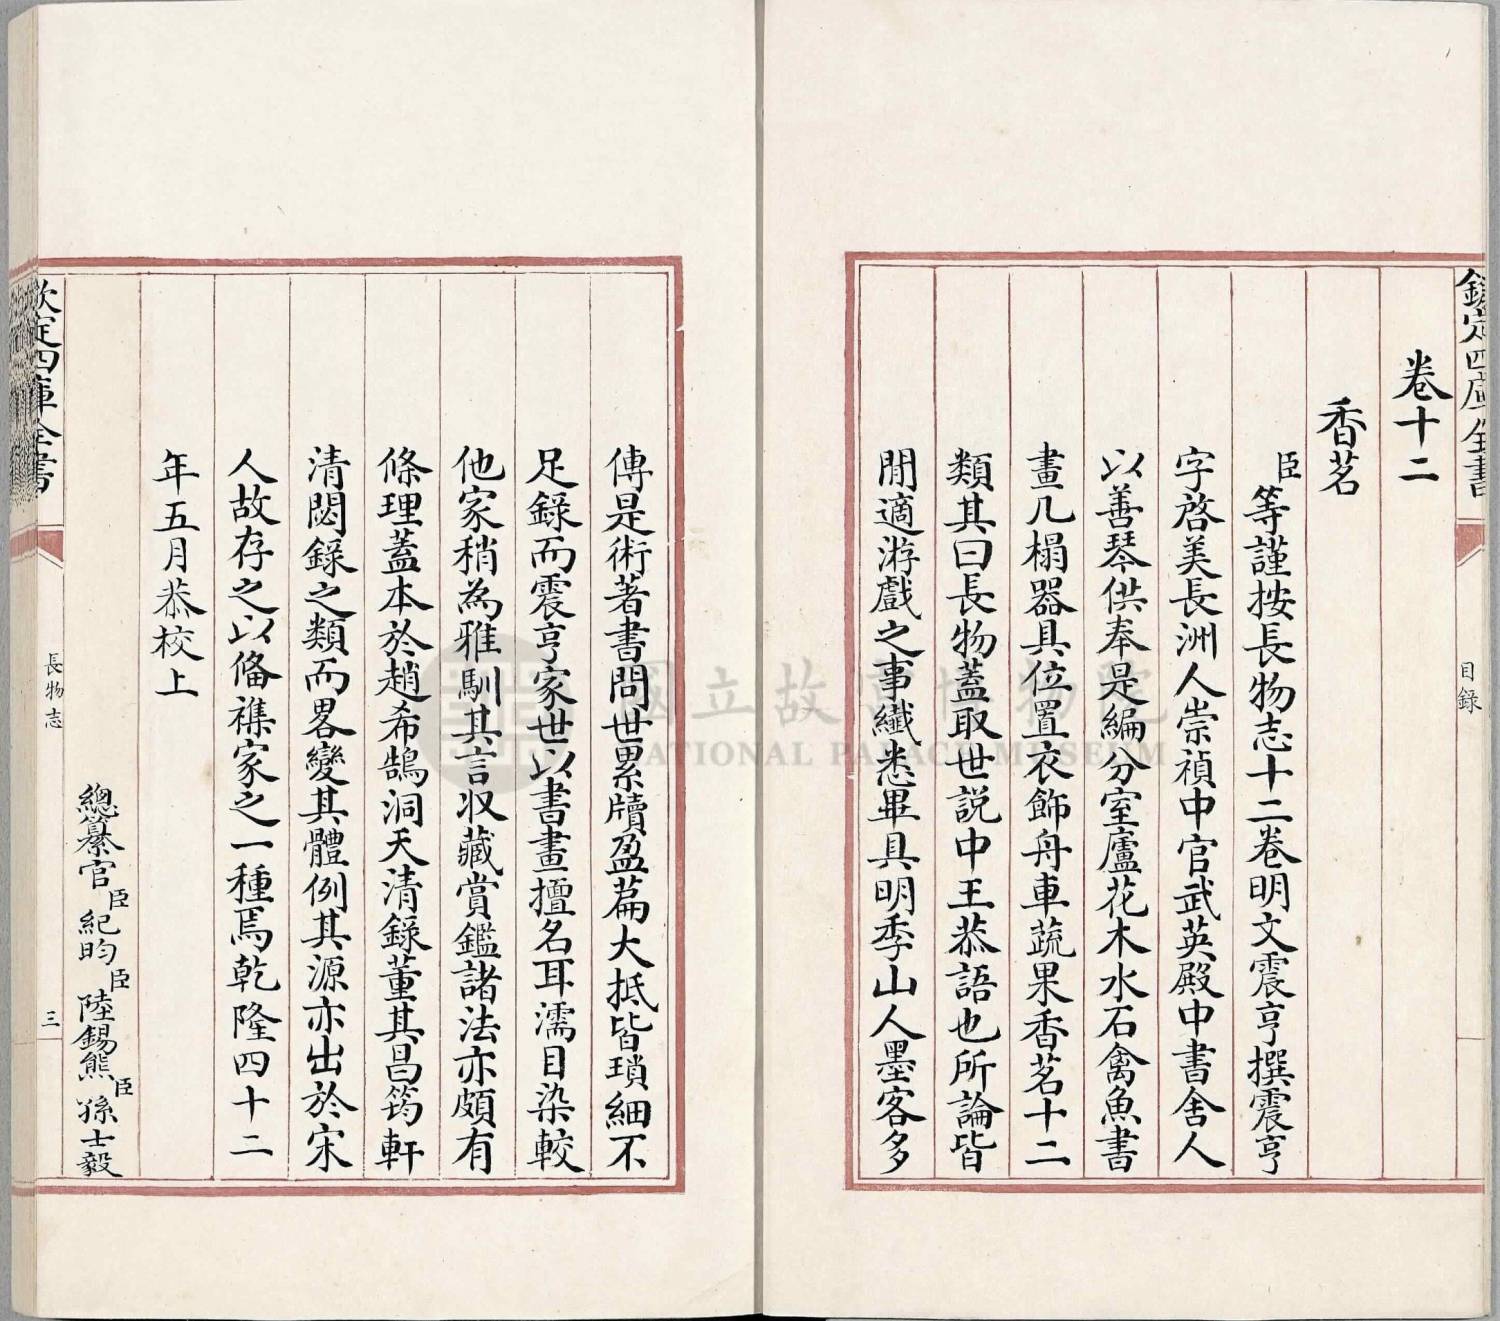 欽定四庫全書
目録
卷十二
香茗
臣等謹按長物志十二卷明文震亨撰震亨
字啓美長洲人崇禎中官武英殿中書舍人
以善琴供奉是編分室廬花木水石禽魚書
畫几榻器具位置衣飾舟車蔬果香茗十二
類其曰長物蓋取世説中王恭語也所論皆
閒適游戲之事纖悉畢具明季山人墨客多
傳是術著書問世累牘盈篇大抵皆瑣細不
足錄而震亨家世以書畫擅名耳濡目染較
他家稍為雅馴其言收藏賞鑑諸法亦頗有
條理蓋本於趙希鵠洞天清錄董其昌筠軒
清閟錄之類而畧變其體例其源亦出於宋
人故存之以備襍家之一種焉乾隆四十二
年五月恭校上
總纂官臣紀昀臣陸錫熊臣孫士毅
欽定四庫全書
長物志
三
國立故宮博物院
NATIONAL PALACE MUSEUM